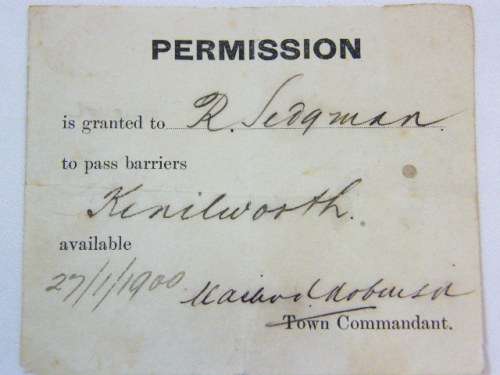 PERMISSION
is granted to R. Sedgman.
to pass barriers
Kenilworth.
available
27/1/1900
Town Commandant.